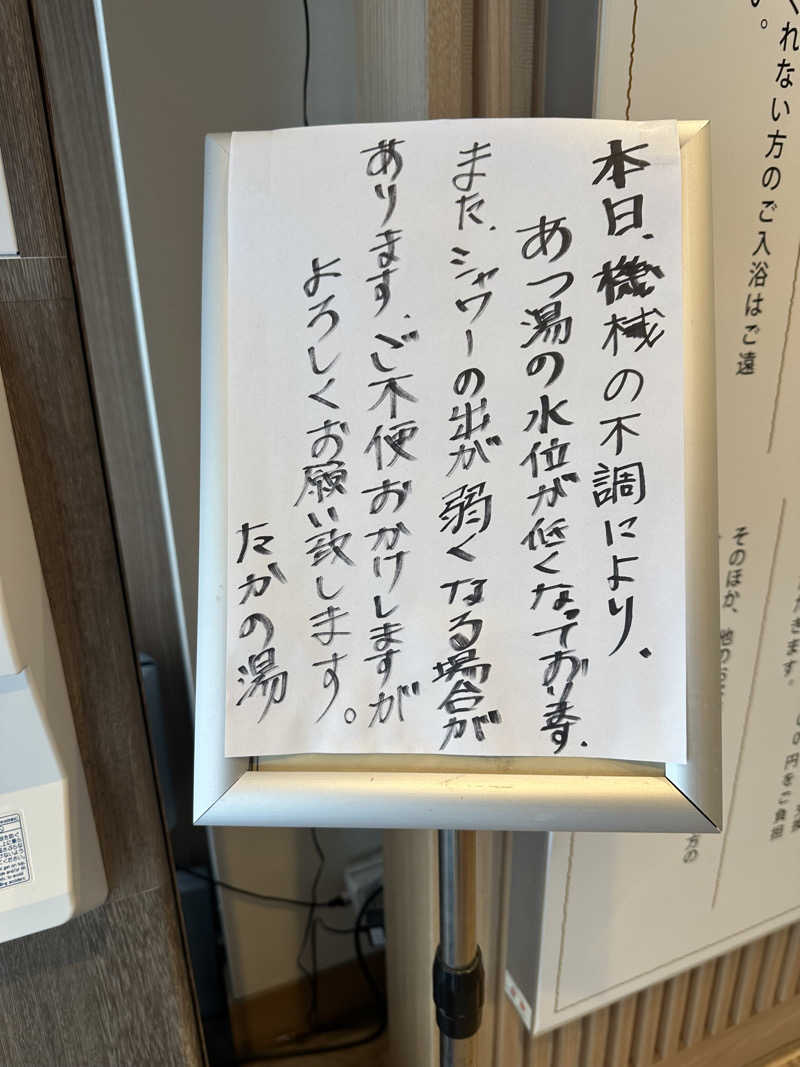 本日、機械の不調により、
あつ湯の水位が低くなっております。
また、シャワーの出が弱くなる場合が
あります、ご不便おかけしますが
よろしくお願い致します。
たかの湯
い。
くれない方のご入浴はご遠
そのほか、他の
きます。
円をご負担
方の